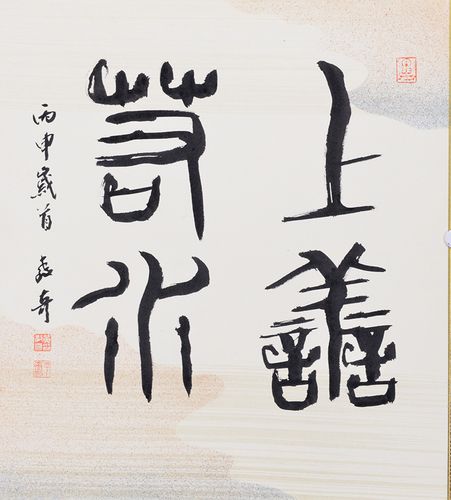 上善
若水
丙申歲首 奇